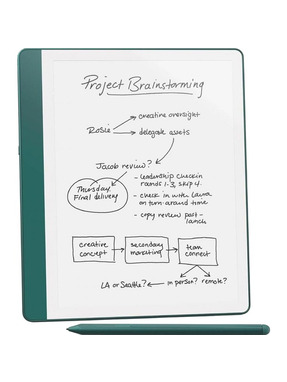 Project Brainstorming
creative oversight
Rosie
delegate assets
Jacob review?
- leadership checkin
rounds 1-3, skip 4.
Thursday
Final delivery
- check in with Laura
on turn-around time
- copy review post-
launch
creative
concept
secondary
marketing
team
connect
LA or Seattle?
in person?
remote?